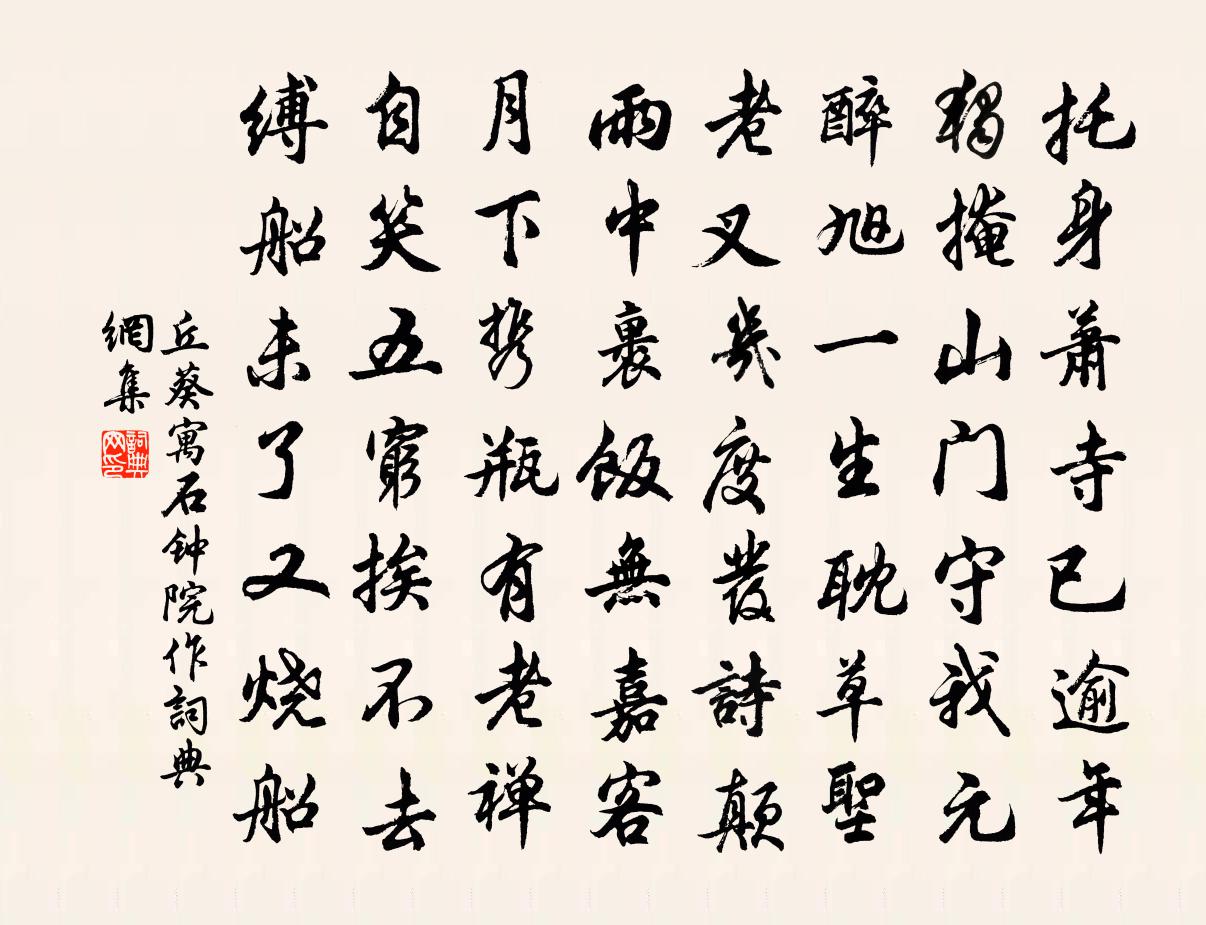 托身萧寺已逾年
獨掩山门守我元
醉旭一生耽草聖
老叉幾度發詩颠
雨中裹飯無嘉客
月下携瓶有老禅
自笑五窮挨不去
缚船未了又烧船
丘葵寓石钟院作詞典
網集
詞典
网印